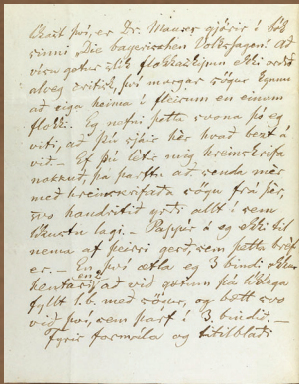 Hvað því, er Dr. Maurer gjörir í bók
sinni „Die bayerischen Volkssagen". Að
vísu getur slík flokkaskipun ekki orðið
alveg critisk, því margar sögur kynnu
að eiga heima í fleirum en einum
flokki. Eg nefni þetta svona þó eg
viti, að þú sjáir hér hvað bezt á
við. – Ef þú letr mig hreinskrifa
nokkuð, þá þarftu að senda mér
með hreinskrifaða sögu frá þér,
svo handritið yrði allt í sem
bestu lagi. – Pappír á eg ekki til
nema af þeirri gerð, sem þetta bréf
er. – En því ætla eg 3 bindi
að við getum frá
fyllt 1. b. með sögur, og bætt svo
við því, sem þarf í 3. bindið. –
Fyrir formála og titilblað